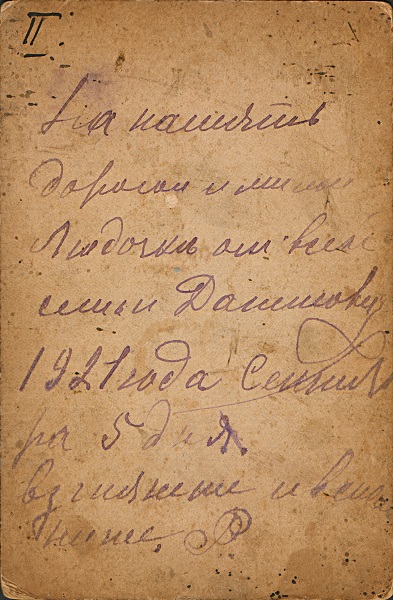 II
На память
дорогой и милой
Людочки от всей
семьи
1921 года Сентяб
ра 5 дня.
взгляните и вспо
ните.